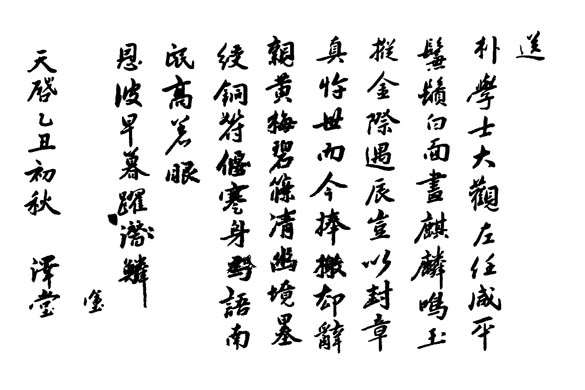 送
朴學士大觀左任咸平
鬑鬚白面畫麒麟鳴玉
摐金際遇辰豈以封章
真忤世而今捧檄却辭
親黃梅碧篠清幽境墨
綬銅符偃蹇身語南
氓高着眼
恩波早暮躍潛鱗
天啓乙丑初秋 澤堂